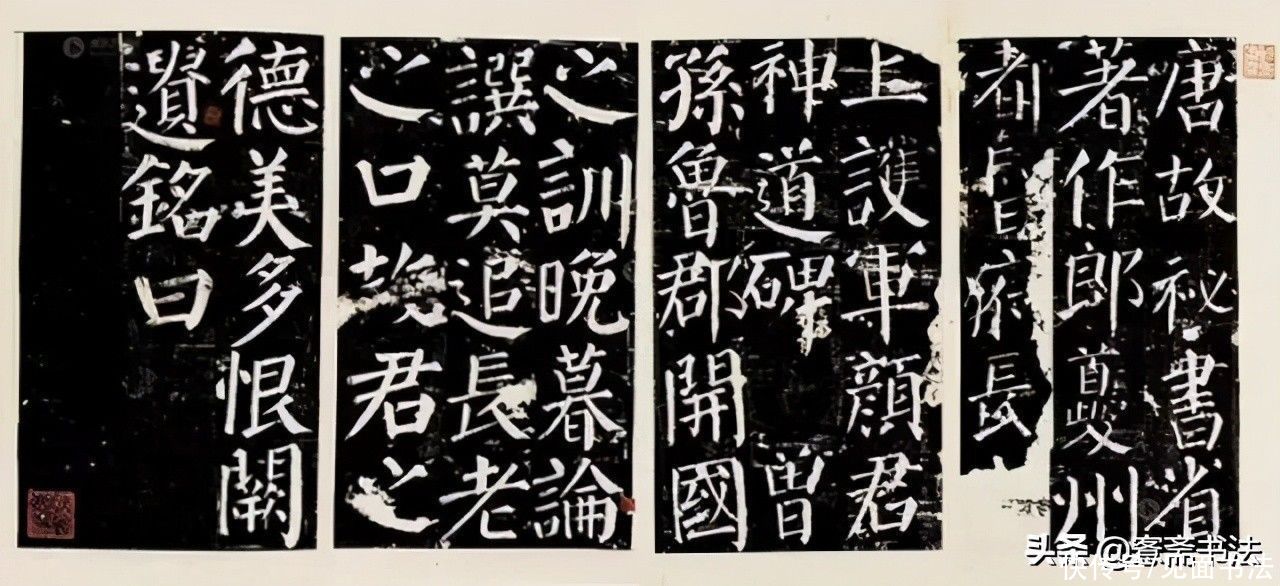 唐故祕書省
著作郎夔州
都督府長
上護軍顏君
神道碑 曾
孫魯郡開國
之訓晚暮論
譔莫追長老
之口故君之
德美多恨闕
遺銘曰
头条 @斋书法
快传号/见面书法